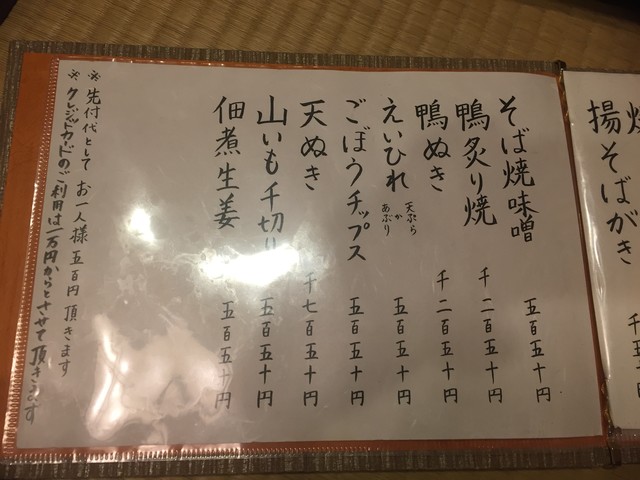 揚そばがき
そば焼味噌 五百五十円
鴨炙り焼 千二百五十円
鴨ぬき 千二百五十円
えいひれ 天ぷらかあぶり 五百五十円
ごぼうチップス 五百五十円
天ぬき 千七百五十円
山いも千切り 五百五十円
佃煮生姜 五百五十円
※先付代として お一人様 五百円 頂きます
※クレジットカードのご利用は一万円からとさせて頂きます